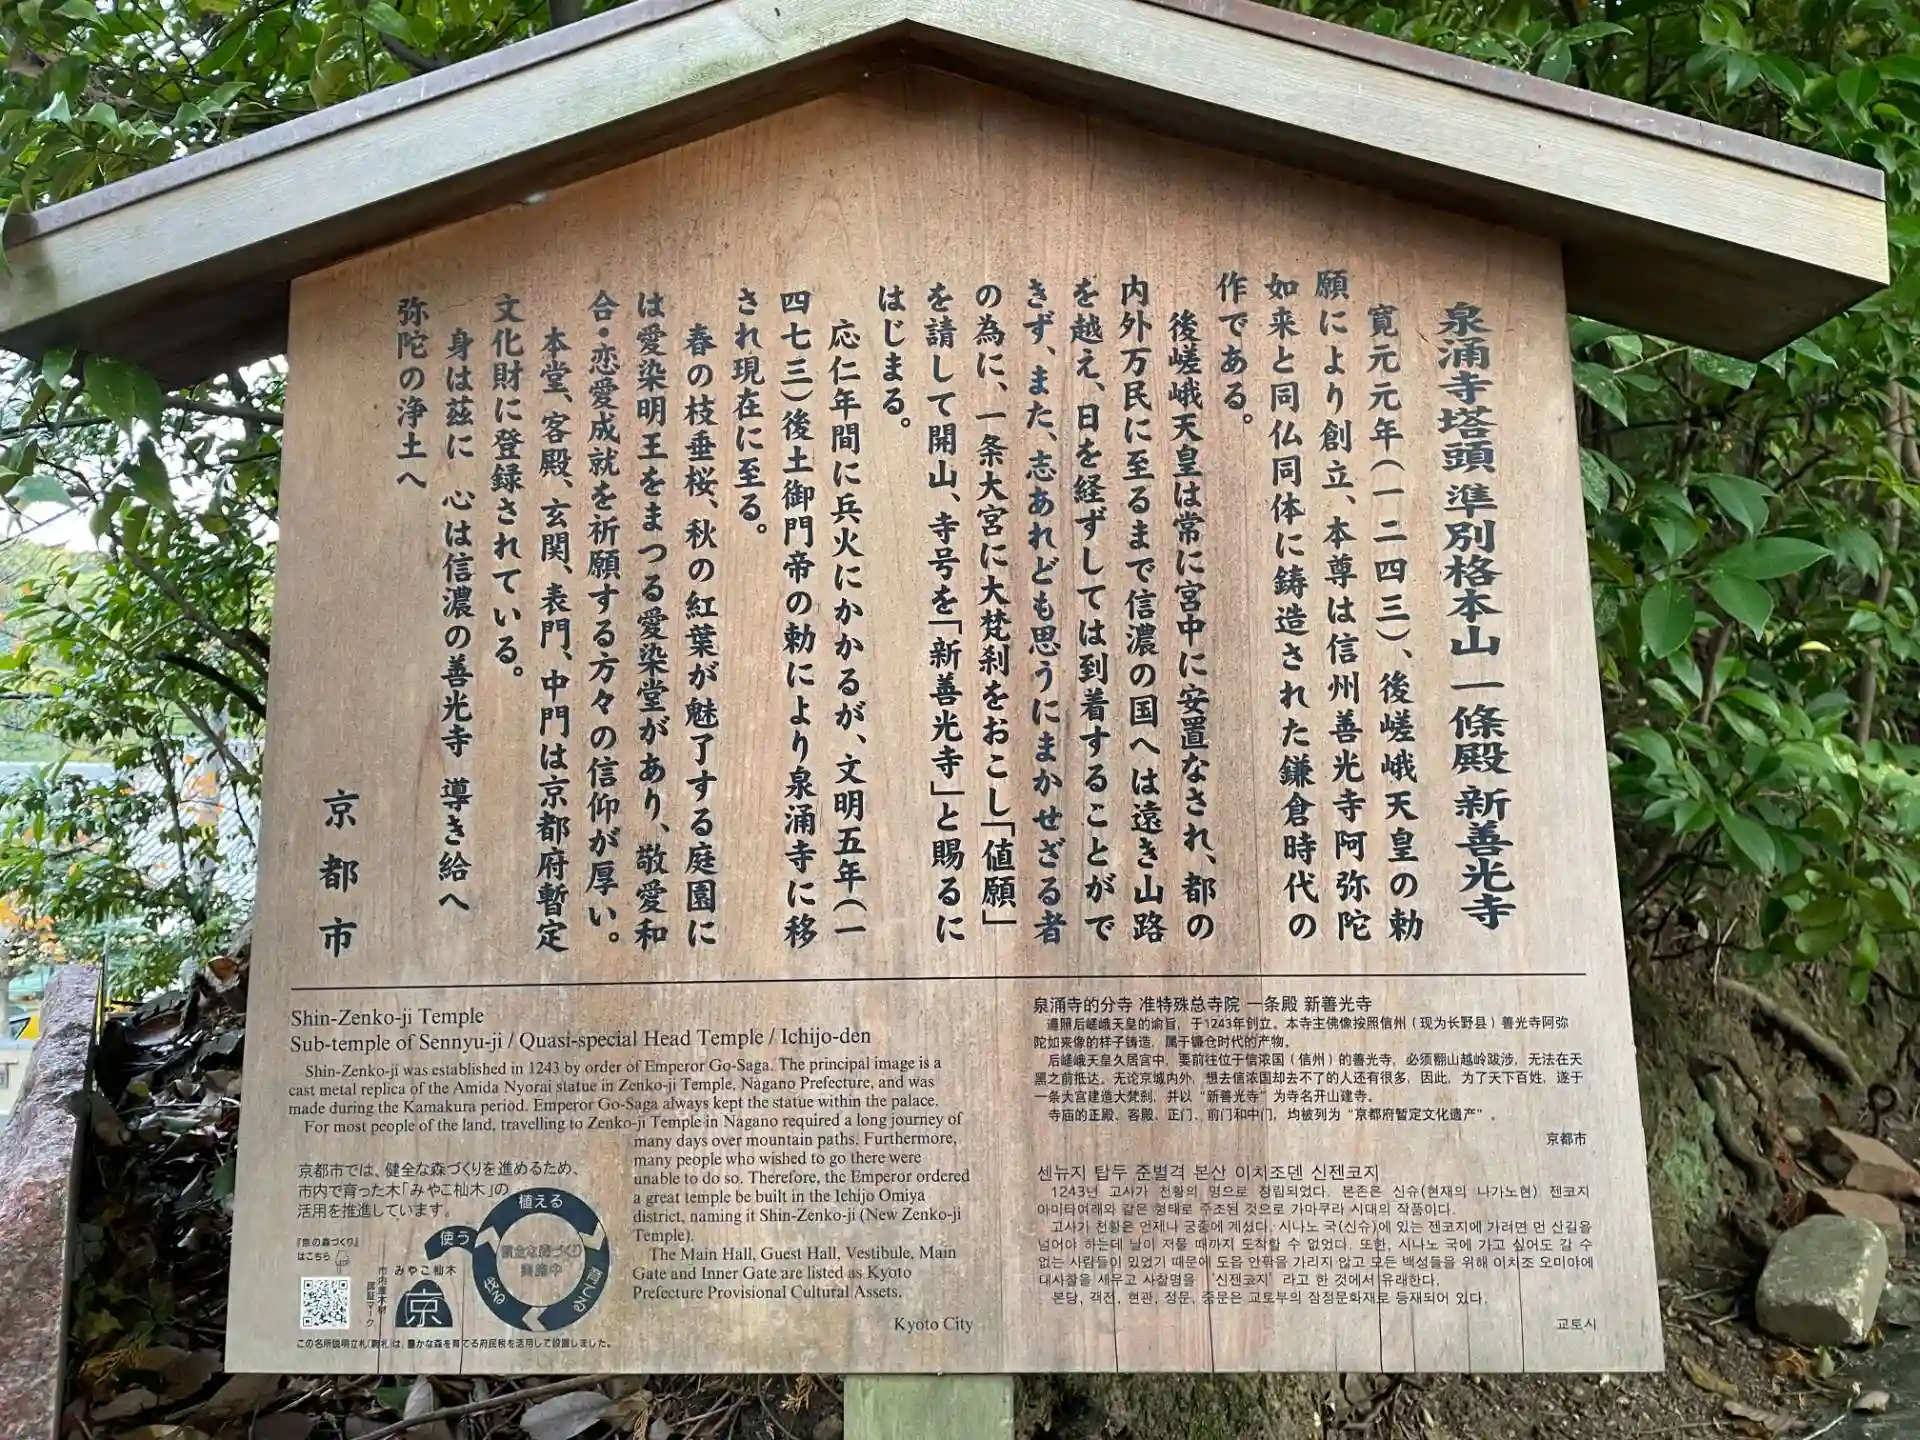 泉涌寺塔頭 準別格本山 一條殿 新善光寺
寛元元年(一二四三)、後嵯峨天皇の勅
願により創立、本尊は信州善光寺阿弥陀
如来と同仏同体に鋳造された鎌倉時代の
作である。
後嵯峨天皇は常に宮中に安置なされ、都の
内外万民に至るまで信濃の国へは遠き山路
を越え、日を経ずしては到着することがで
きず、また、志あれども思うにまかせざる者
の為に、一条大宮に大梵刹をおこし「値願」
を請して開山、寺号を「新善光寺」と賜るに
はじまる。
応仁年間に兵火にかかるが、文明五年(一
四七三)後土御門帝の勅により泉涌寺に移
され現在に至る。
春の枝垂桜、秋の紅葉が魅了する庭園に
は愛染明王をまつる愛染堂があり、敬愛和
合・恋愛成就を祈願する方々の信仰が厚い。
本堂、客殿、玄関、表門、中門は京都府暫定
文化財に登録されている。
身は茲に 心は信濃の善光寺 導き給へ
弥陀の浄土へ
京都市
Shin-Zenko-ji Temple
Sub-temple of Sennyu-ji / Quasi-special Head Temple / Ichijo-den
Shin-Zenko-ji was established in 1243 by order of Emperor Go-Saga. The principal image is a
cast metal replica of the Amida Nyorai statue in Zenko-ji Temple, Nagano Prefecture, and was
made during the Kamakura period. Emperor Go-Saga always kept the statue within the palace.
For most people of the land, travelling to Zenko-ji Temple in Nagano required a long journey of
many days over mountain paths. Furthermore,
many people who wished to go there were
unable to do so. Therefore, the Emperor ordered
a great temple be built in the Ichijo Omiya
district, naming it Shin-Zenko-ji (New Zenko-ji
Temple).
The Main Hall, Guest Hall, Vestibule, Main
Gate and Inner Gate are listed as Kyoto
Prefecture Provisional Cultural Assets.
Kyoto City
京都市では、健全な森づくりを進めるため、
市内で育った木「みやこ杣木」の
活用を推進しています。
『京の森づくり』
はこちら
市内産木材
みやこ杣木
京
植える
育てる
伐る
使う
健全な森づくり
実施中
この名所説明立札(駒札)は、豊かな森を育てる府民税を活用して設置しました。
泉涌寺的分寺 准特殊总寺院 一条殿 新善光寺
遵照后嵯峨天皇的谕旨，于1243年创立。本寺主佛像按照信州（现为长野县）善光寺阿弥
陀如来像的样子铸造，属于镰仓时代的产物。
后嵯峨天皇久居宫中，要前往位于信浓国（信州）的善光寺，必须翻山越岭跋涉，无法在天
黑之前抵达。无论京城内外，想去信浓国却去不了的人还有很多，因此，为了天下百姓，遂于
一条大宫建造大梵刹，并以“新善光寺”为寺名开山建寺。
寺庙的正殿、客殿、正门、前门和中门，均被列为“京都府暂定文化遗产”。
京都市
센뉴지 탑두 준별격 본산 이치조덴 신젠코지
1243년 고사가 천황의 명으로 창립되었다. 본존은 신슈(현재의 나가노현) 젠코지
아미타여래와 같은 형태로 주조된 것으로 가마쿠라 시대의 작품이다.
고사가 천황은 언제나 궁중에 계셨다. 시나노 국(신슈)에 있는 젠코지에 가려면 먼 산길을
넘어야 하는데 날이 저물 때까지 도착할 수 없었다. 또한, 시나노 국에 가고 싶어도 갈 수
없는 사람들이 있었기 때문에 도읍 안팎을 가리지 않고 모든 백성들을 위해 이치조 오미야에
대사찰을 세우고 사찰명을 ‘신젠코지’라고 한 것에서 유래한다.
본당, 객전, 현관, 정문, 중문은 교토부의 잠정문화재로 등재되어 있다.
교토시